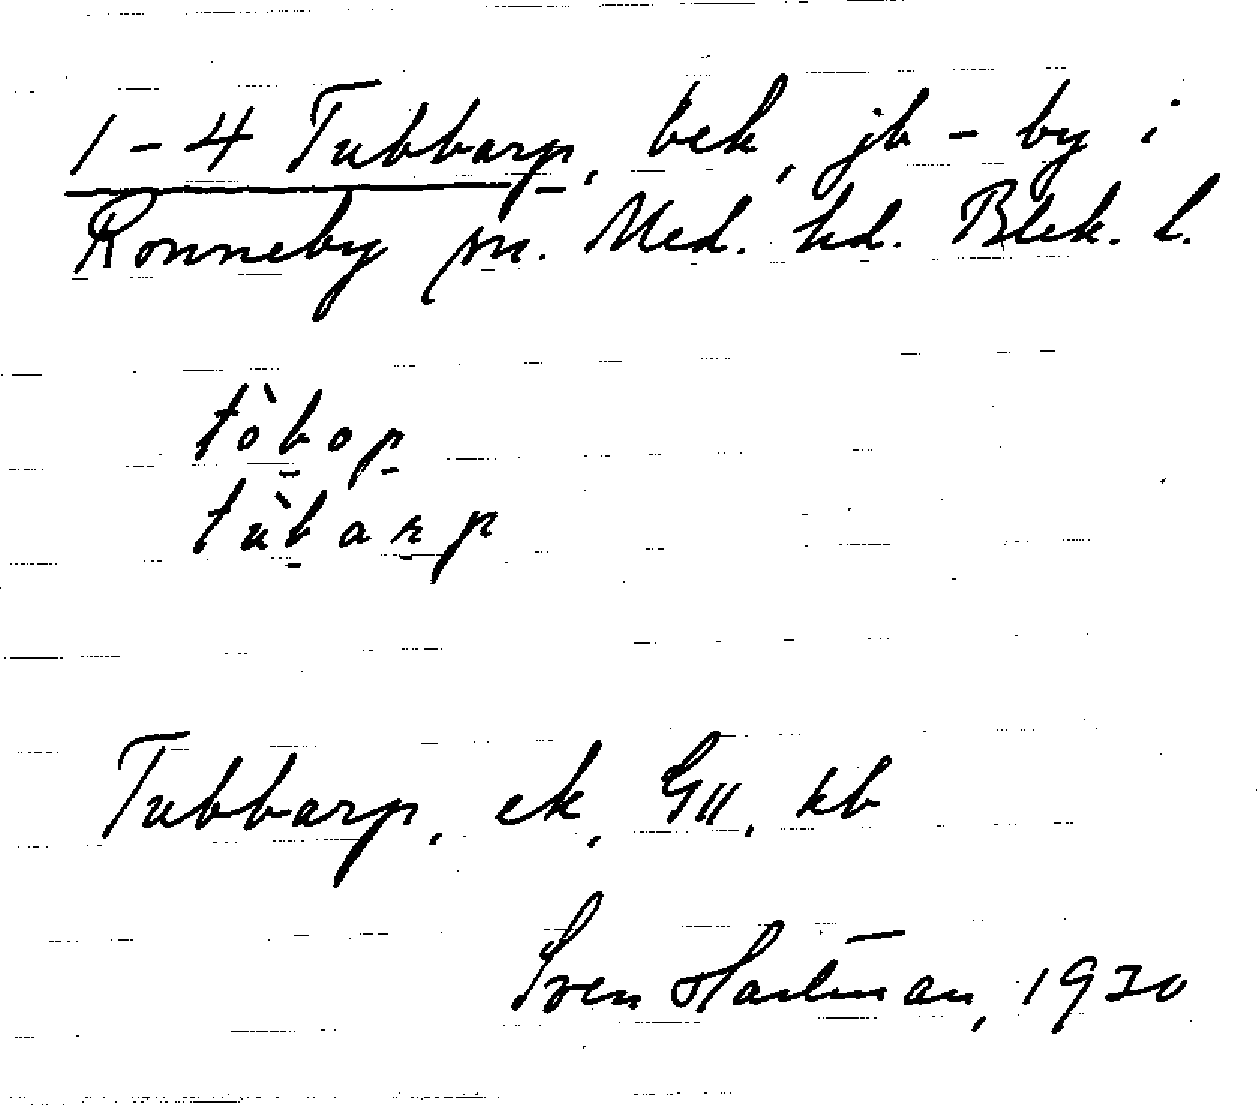 1-4 Tubbarp, bek, jb-by i
Ronneby sn. Med. hd. Blek. l.
tòbop
tùbarp
Tubbarp, ek, GII, kb
Sven Hartman, 1930